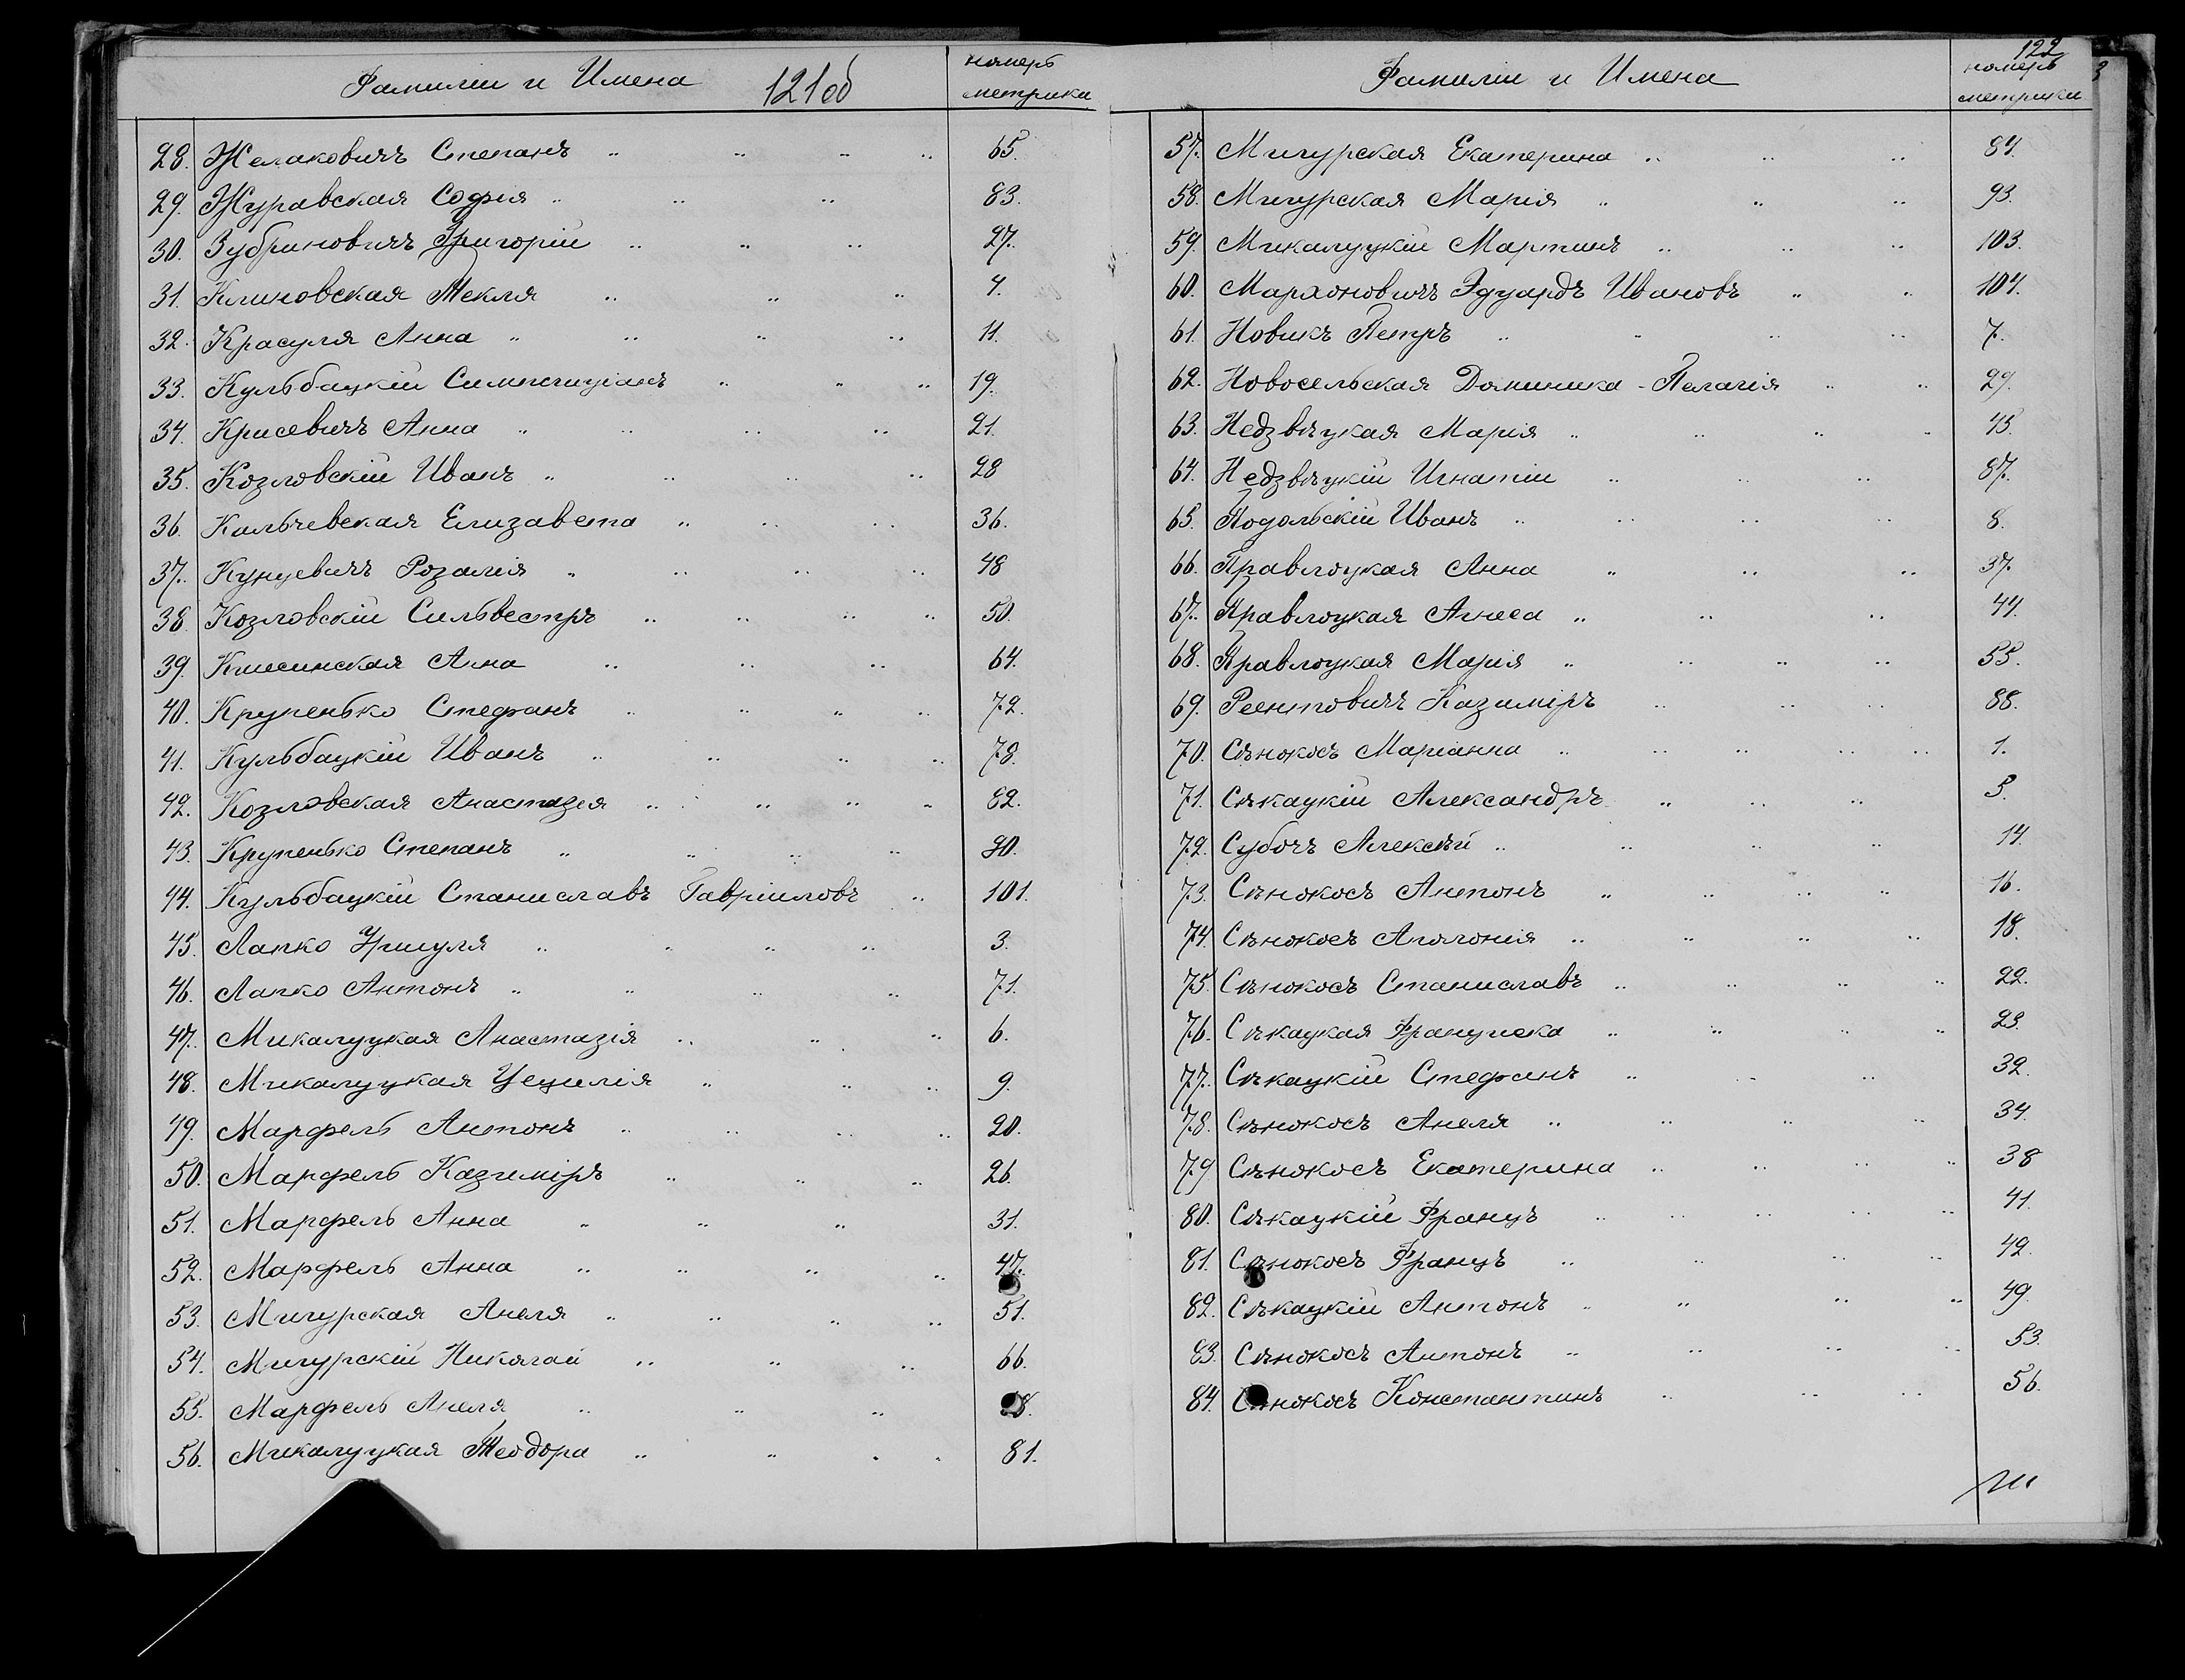 Фамиліи и Имена 121 об номеръ метрики
28. Желаковичъ Степанъ 65.
29. Журавская Софія 83.
30. Зубриновичъ Григорій 27.
31. Климовская Текля 4.
32. Красуля Анна 11.
33. Кульбацкій 19.
34. Крисевичъ Анна 21.
35. Козловскій Иванъ 28
36. Кальчевская Елизавета 36.
37. Кунцевичъ Розалія 48
38. Козловскій Сильвестръ 50.
39. Анна 64.
40. Крупенько Стефанъ 72.
41. Кульбацкій Иванъ 78.
42. Козловская Анастазея 82.
43. Крупенько Степанъ 90.
44. Кульбацкій Станиславъ Гавріиловъ 101.
45. Лапко Уршуля 3.
46. Лапко Антонъ 71.
47. Микалуцкая Анастазія 6.
48. Микалуцкая Цецилія 9.
49. Марфель Антонъ 20.
50. Марфель Казиміръ 26.
51. Марфель Анна 31.
52. Марфель Анна 47.
53. Мигурская Анеля 51.
54. Мигурскій Николай 66.
55. Марфель Анеля
56. Микалуцкая Теодора 81.
122
Фамиліи и Имена номеръ метрики
57. Мигурская Екатерина 84.
58. Мигурская Марія 93.
59. Микалуцкій Мартинъ 103.
60. Мархоновичъ Эдуардъ Ивановъ 104.
61. Новикъ Петръ 7.
62. Новосельская Доминика-Пелагія 29.
63. Недзвѣцкая Марія 45.
64. Недзвѣцкій Игнатій 87.
65. Подольскій Иванъ 8.
66. Правлоцкая Анна 37.
67. Правлоцкая Агнеса 44.
68. Правлоцкая Марія 55.
69. Реентовичъ Казиміръ 88.
70. Сѣнокосъ Маріанна 1.
71. Сѣкацкій Александръ 5.
72. Субочъ Алексѣй 14.
73. Сѣнокосъ Антонъ 16.
74. Сѣнокосъ Аполонія 18.
75. Сѣнокосъ Станиславъ 22.
76. Сѣкацкая Франциска 23.
77. Сѣкацкій Стефанъ 32.
78. Сѣнокосъ Анеля 34.
79 Сѣнокосъ Екатерина 38
80. Сѣкацкій Францъ 41.
81. Сѣнокосъ Францъ 42.
82. Сѣкацкій Антонъ 49.
83. Сѣнокосъ Антонъ 53.
84. Сѣнокосъ Константинъ 56.